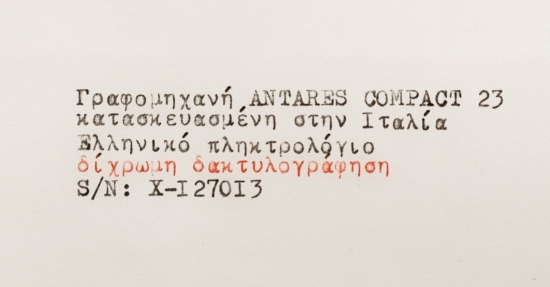 Γραφομηχανή ANTARES COMPACT 23
κατασκευασμένη στην Ιταλία
Ελληνικό πληκτρολόγιο
δίχρωμη δακτυλογράφηση
S/N: X-I27013